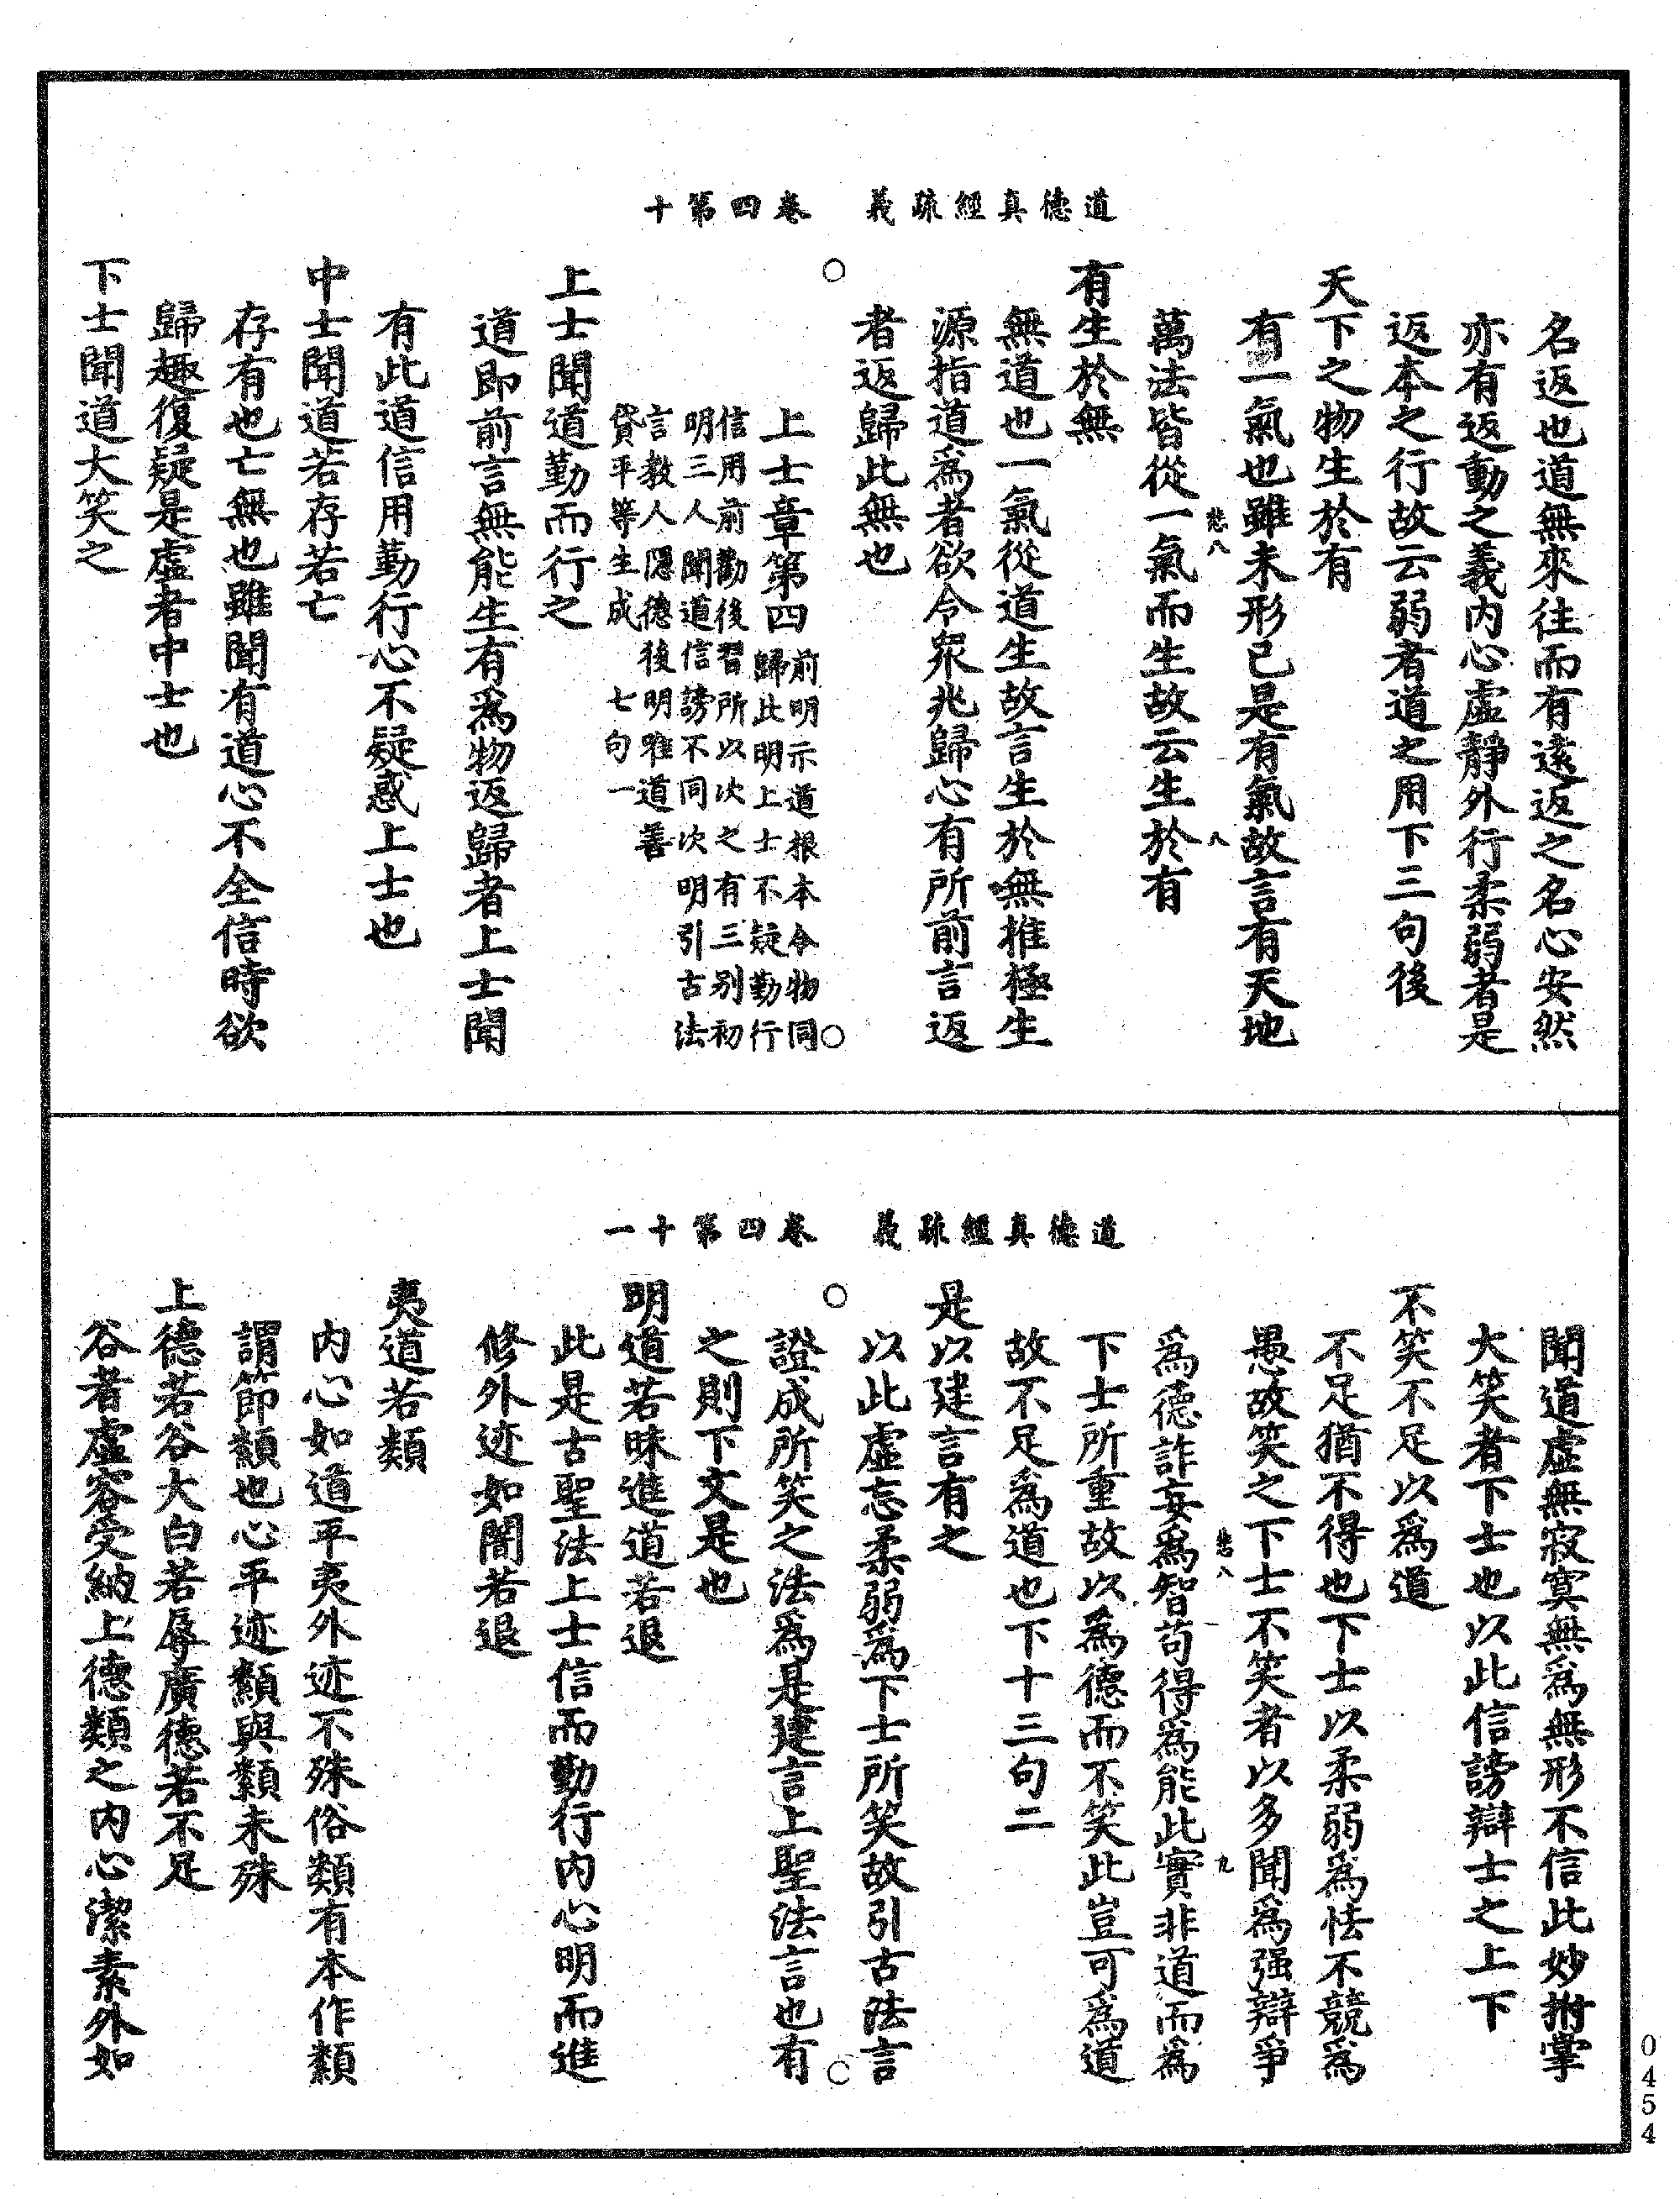 道德真經疏義　卷四第十
名返也道無來往而有遠返之名心安然
亦有返動之義内心虛靜外行柔弱者是
返本之行故云弱者道之用下三句後
天下之物生於有
有一氣也雖未形已是有氣故言有天地
悲八　八
萬法皆從一氣而生故云生於有
有生於無
無道也一氣從道生故言生於無推極生
源指道爲者欲令衆兆歸心有所前言返
者返歸此無也
上士章第四
前明示道根本令物同
歸此明上士不疑勤行
信用前勸後習所以次之有三別初
明三人聞道信謗不同次明引古法
言教人隱德後明唯道善
貸平等生成　七句一
上士聞道勤而行之
道即前言無能生有爲物返歸者上士聞
有此道信用勤行心不疑惑上士也
中士聞道若存若亡
存有也亡無也雖聞有道心不全信時欲
歸趣復疑是虛者中士也
下士聞道大笑之
道德真經疏義　卷四第十一
聞道虛無寂寞無爲無形不信此妙拊掌
大笑者下士也以此信謗辯士之上下
不笑不足以爲道
不足猶不得也下士以柔弱爲怯不競爲
愚故笑之下士不笑者以多聞爲强辯爭
悲八　九
爲德詐妄爲智苟得爲能此實非道而爲
下士所重故以爲德而不笑此豈可爲道
故不足爲道也下十三句二
是以建言有之
以此虛忘柔弱爲下士所笑故引古法言
證成所笑之法爲是建言上聖法言也有
之則下文是也
明道若昧進道若退
此是古聖法上士信而勤行内心明而進
修外迹如闇若退
夷道若類
内心如道平夷外迹不殊俗類有本作纇
謂節纇也心平迹纇與類未殊
上德若谷大白若辱廣德若不足
谷者虛容受納上德類之内心潔素外如
0454